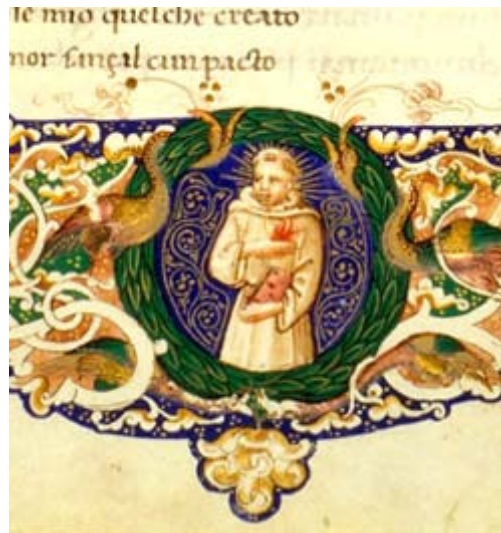 le mio quelche creato
nor sinçal cunpacto